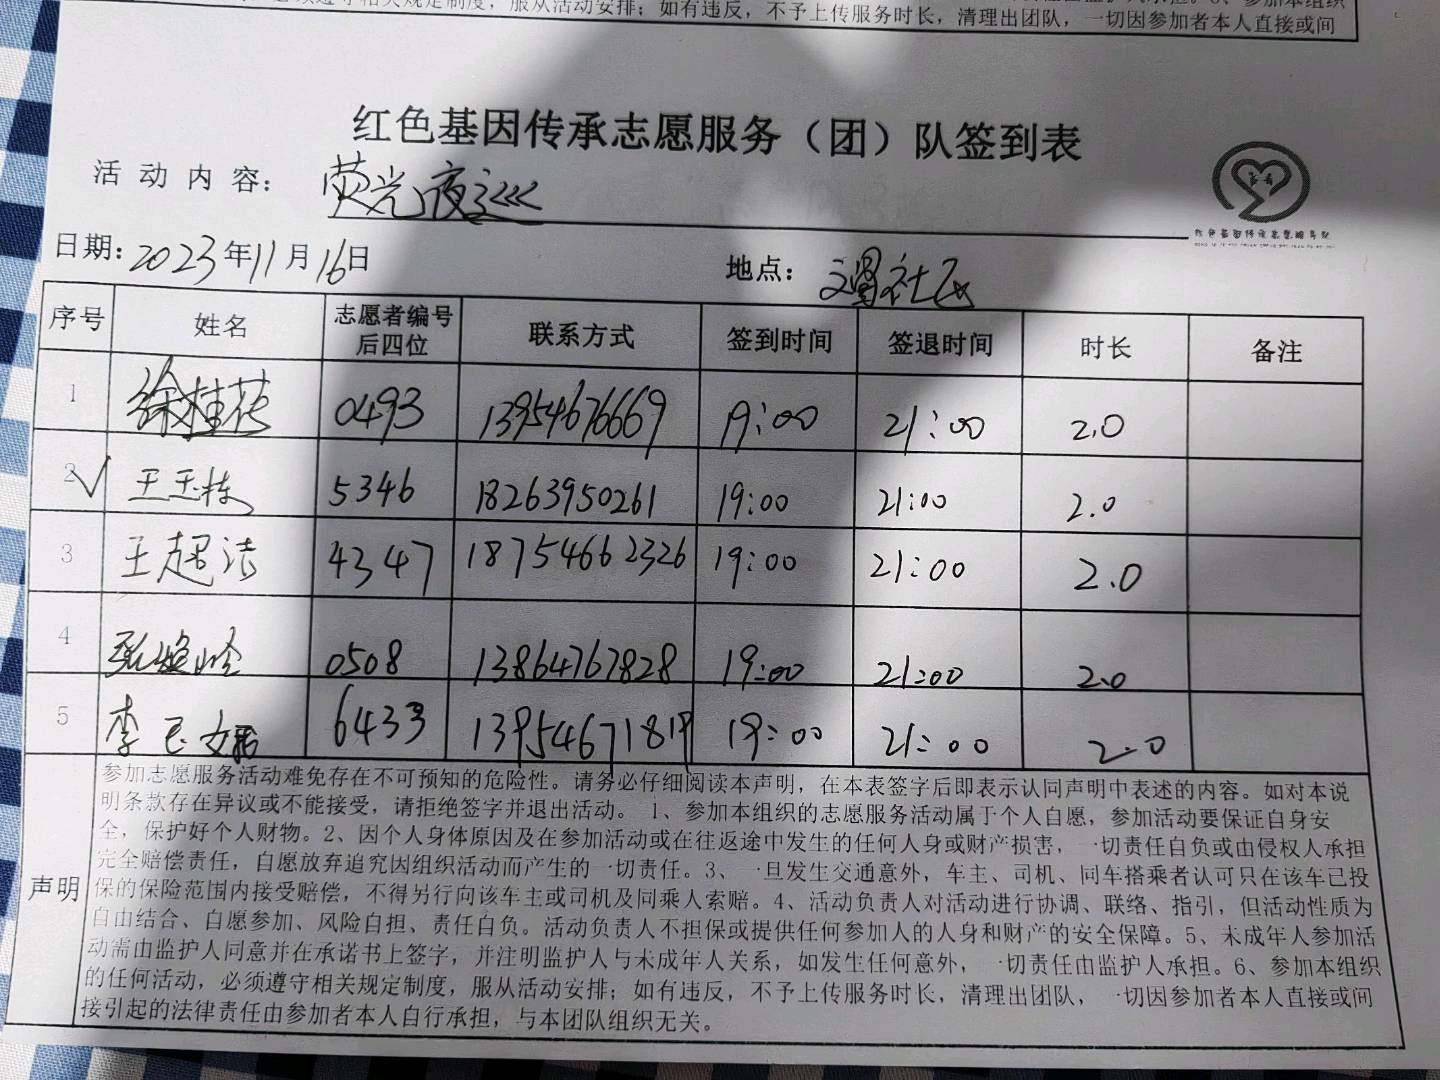 的任何活动，必须遵守相关规定制度，服从活动安排；如有违反，不予上传服务时长，清理出团队，一切因参加者本人直接或间
红色基因传承志愿服务（团）队签到表
活动内容： 荧光夜巡
日期：2023年11月16日 地点： 社区
序号 姓名 志愿者编号后四位 联系方式 签到时间 签退时间 时长 备注
1 徐桂花 0493 13954676669 19:00 21:00 2.0
2 王玉栋 5346 18263950261 19:00 21:00 2.0
3 王超洁 4347 18754662326 19:00 21:00 2.0
4 0508 13864767828 19:00 21:00 2.0
5 李玉娟 6433 13954671819 19:00 21:00 2.0
声明
参加志愿服务活动难免存在不可预知的危险性。请务必仔细阅读本声明，在本表签字后即表示认同声明中表述的内容。如对本说
明条款存在异议或不能接受，请拒绝签字并退出活动。 1、参加本组织的志愿服务活动属于个人自愿，参加活动要保证自身安
全，保护好个人财物。2、因个人身体原因及在参加活动或在往返途中发生的任何人身或财产损害，一切责任自负或由侵权人承担
完全赔偿责任，自愿放弃追究因组织活动而产生的一切责任。3、一旦发生交通意外，车主、司机、同车搭乘者认可只在该车已投
保的保险范围内接受赔偿，不得另行向该车主或司机及同乘人索赔。4、活动负责人对活动进行协调、联络、指引，但活动性质为
自由结合、自愿参加、风险自担、责任自负。活动负责人不担保或提供任何参加人的人身和财产的安全保障。5、未成年人参加活
动需由监护人同意并在承诺书上签字，并注明监护人与未成年人关系，如发生任何意外，一切责任由监护人承担。6、参加本组织
的任何活动，必须遵守相关规定制度，服从活动安排；如有违反，不予上传服务时长，清理出团队，一切因参加者本人直接或间
接引起的法律责任由参加者本人自行承担，与本团队组织无关。